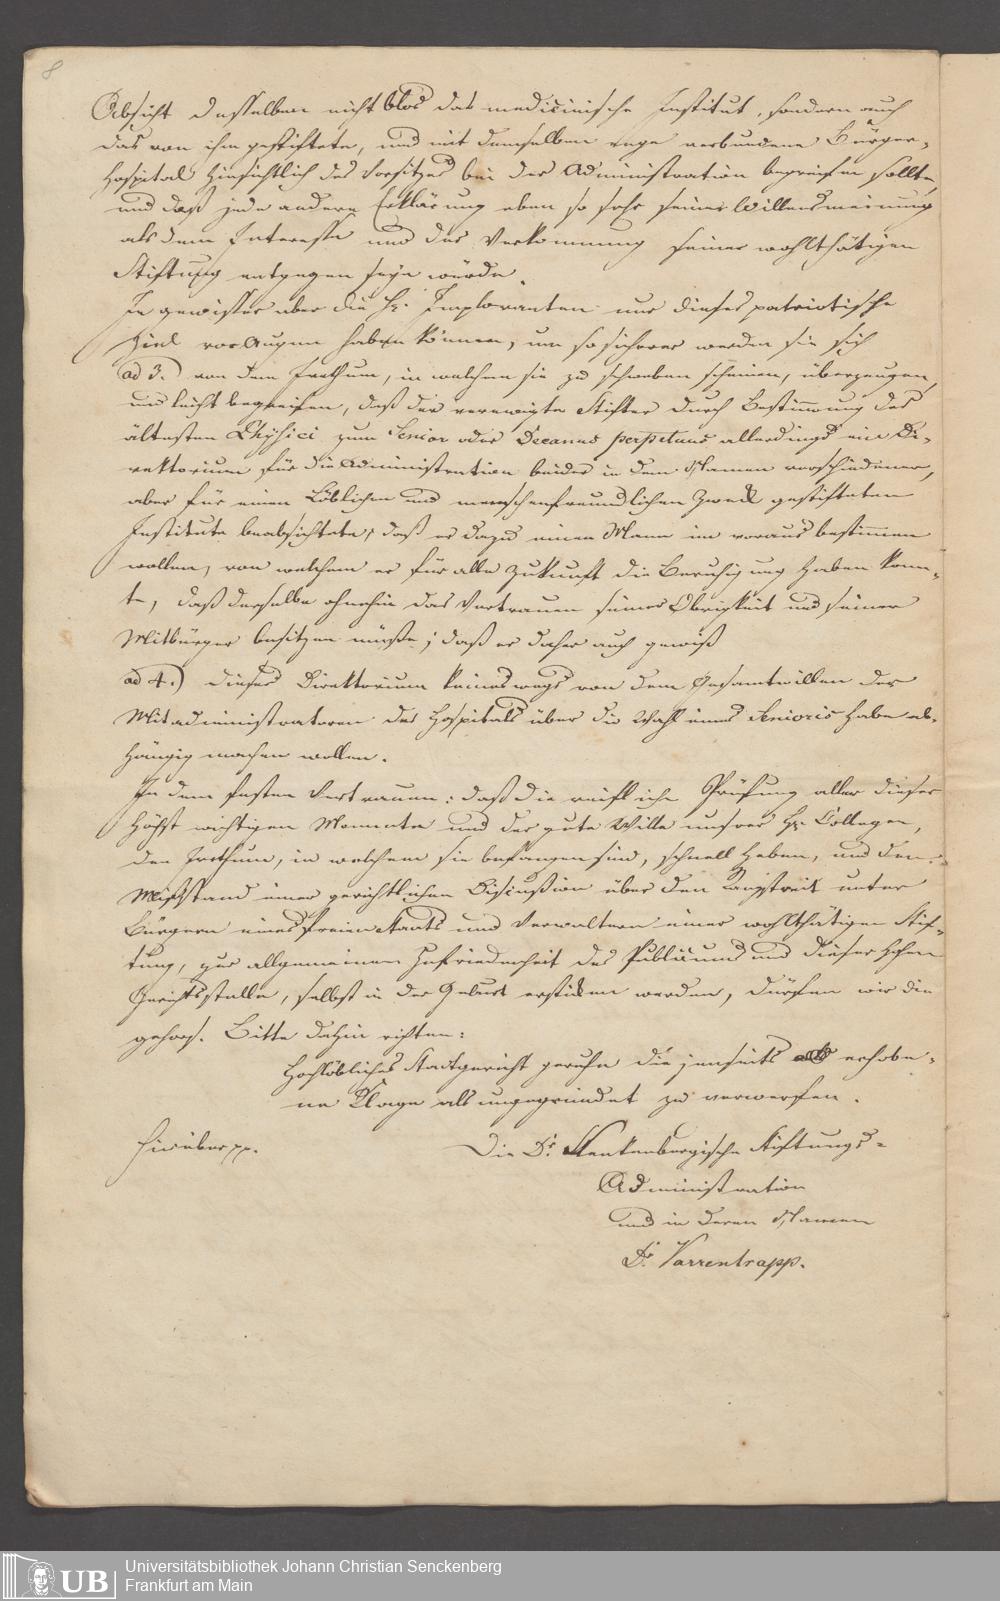 8
Absicht desselben nicht blos das medicinische Institut, sondern auch
das von ihm gestiftete, und mit demselben enge verbundene Bürger-
hospital hinsichtlich des Vorsitzes bei der Administration begreifen sollte,
und daß jede andere Erklärung eben so sehr seiner Willensmeinung
als dem Interesse und der Verkommnung seiner wohlthätigen
Stiftung entgegen seyn würde.
Je gewisser aber die H. Imploranten nur dieses patriotische
Ziel vor Augen haben können, um so sicherer werden sie sich
ad 3.) von dem Irrthum, in welchem sie zu schweben scheinen, überzeugen,
und leicht begreifen, daß der verewigte Stifter durch Bestimmung des
ältesten Physici zum Senior oder Decanus perpetuus allerdings ein Di-
rektorium für die Administration beider in dem Namen verschiedener,
aber für einen Löblichen und menschenfreundlichen Zweck gestifteten
Institute beabsichtete; daß er dazu einen Mann im voraus bestimmen
wollen, von welchem er für alle Zukunft die Beruhigung haben konn-
te, daß derselbe ohnehin das Vertrauen seiner Obrigkeit und seiner
Mitbürger besitzen müße; daß er daher auch gewiß
ad 4.) dieses Direktorium keineswegs von dem Gesamtwillen der
Mitadministratoren des Hospitals über die Wahl eines Senioris habe ab-
hängig machen wollen.
In dem festen Vertrauen: daß die reifliche Prüfung aller dieser
höchst wichtigen Momente und der gute Wille unsrer H. Collegen,
den Irrthum, in welchem sie befangen sind, schnell heben, und den
Misstand einer gerichtlichen Discußion über den Rangstreit unter
Bürgern eines freien Staats und Verwaltern einer wohlthätigen Stif-
tung, zur allgemeinen Zufriedenheit des Publicums und dieser hohen
Gerichtsstelle, selbst in der Geburt ersticken werden, dürfen wir die
gehors. Bitte dahin richten:
Hochlöbliches Stadtgericht geruhe die jenseits erhobe-
ne Klage als ungegründet zu verwerfen.
Hierüber pp.
Die Dr. Senkenbergische Stiftungs-
Administration
und in deren Namen
Dr. Varrentrapp.
UB
Universitätsbibliothek Johann Christian Senckenberg
Frankfurt am Main